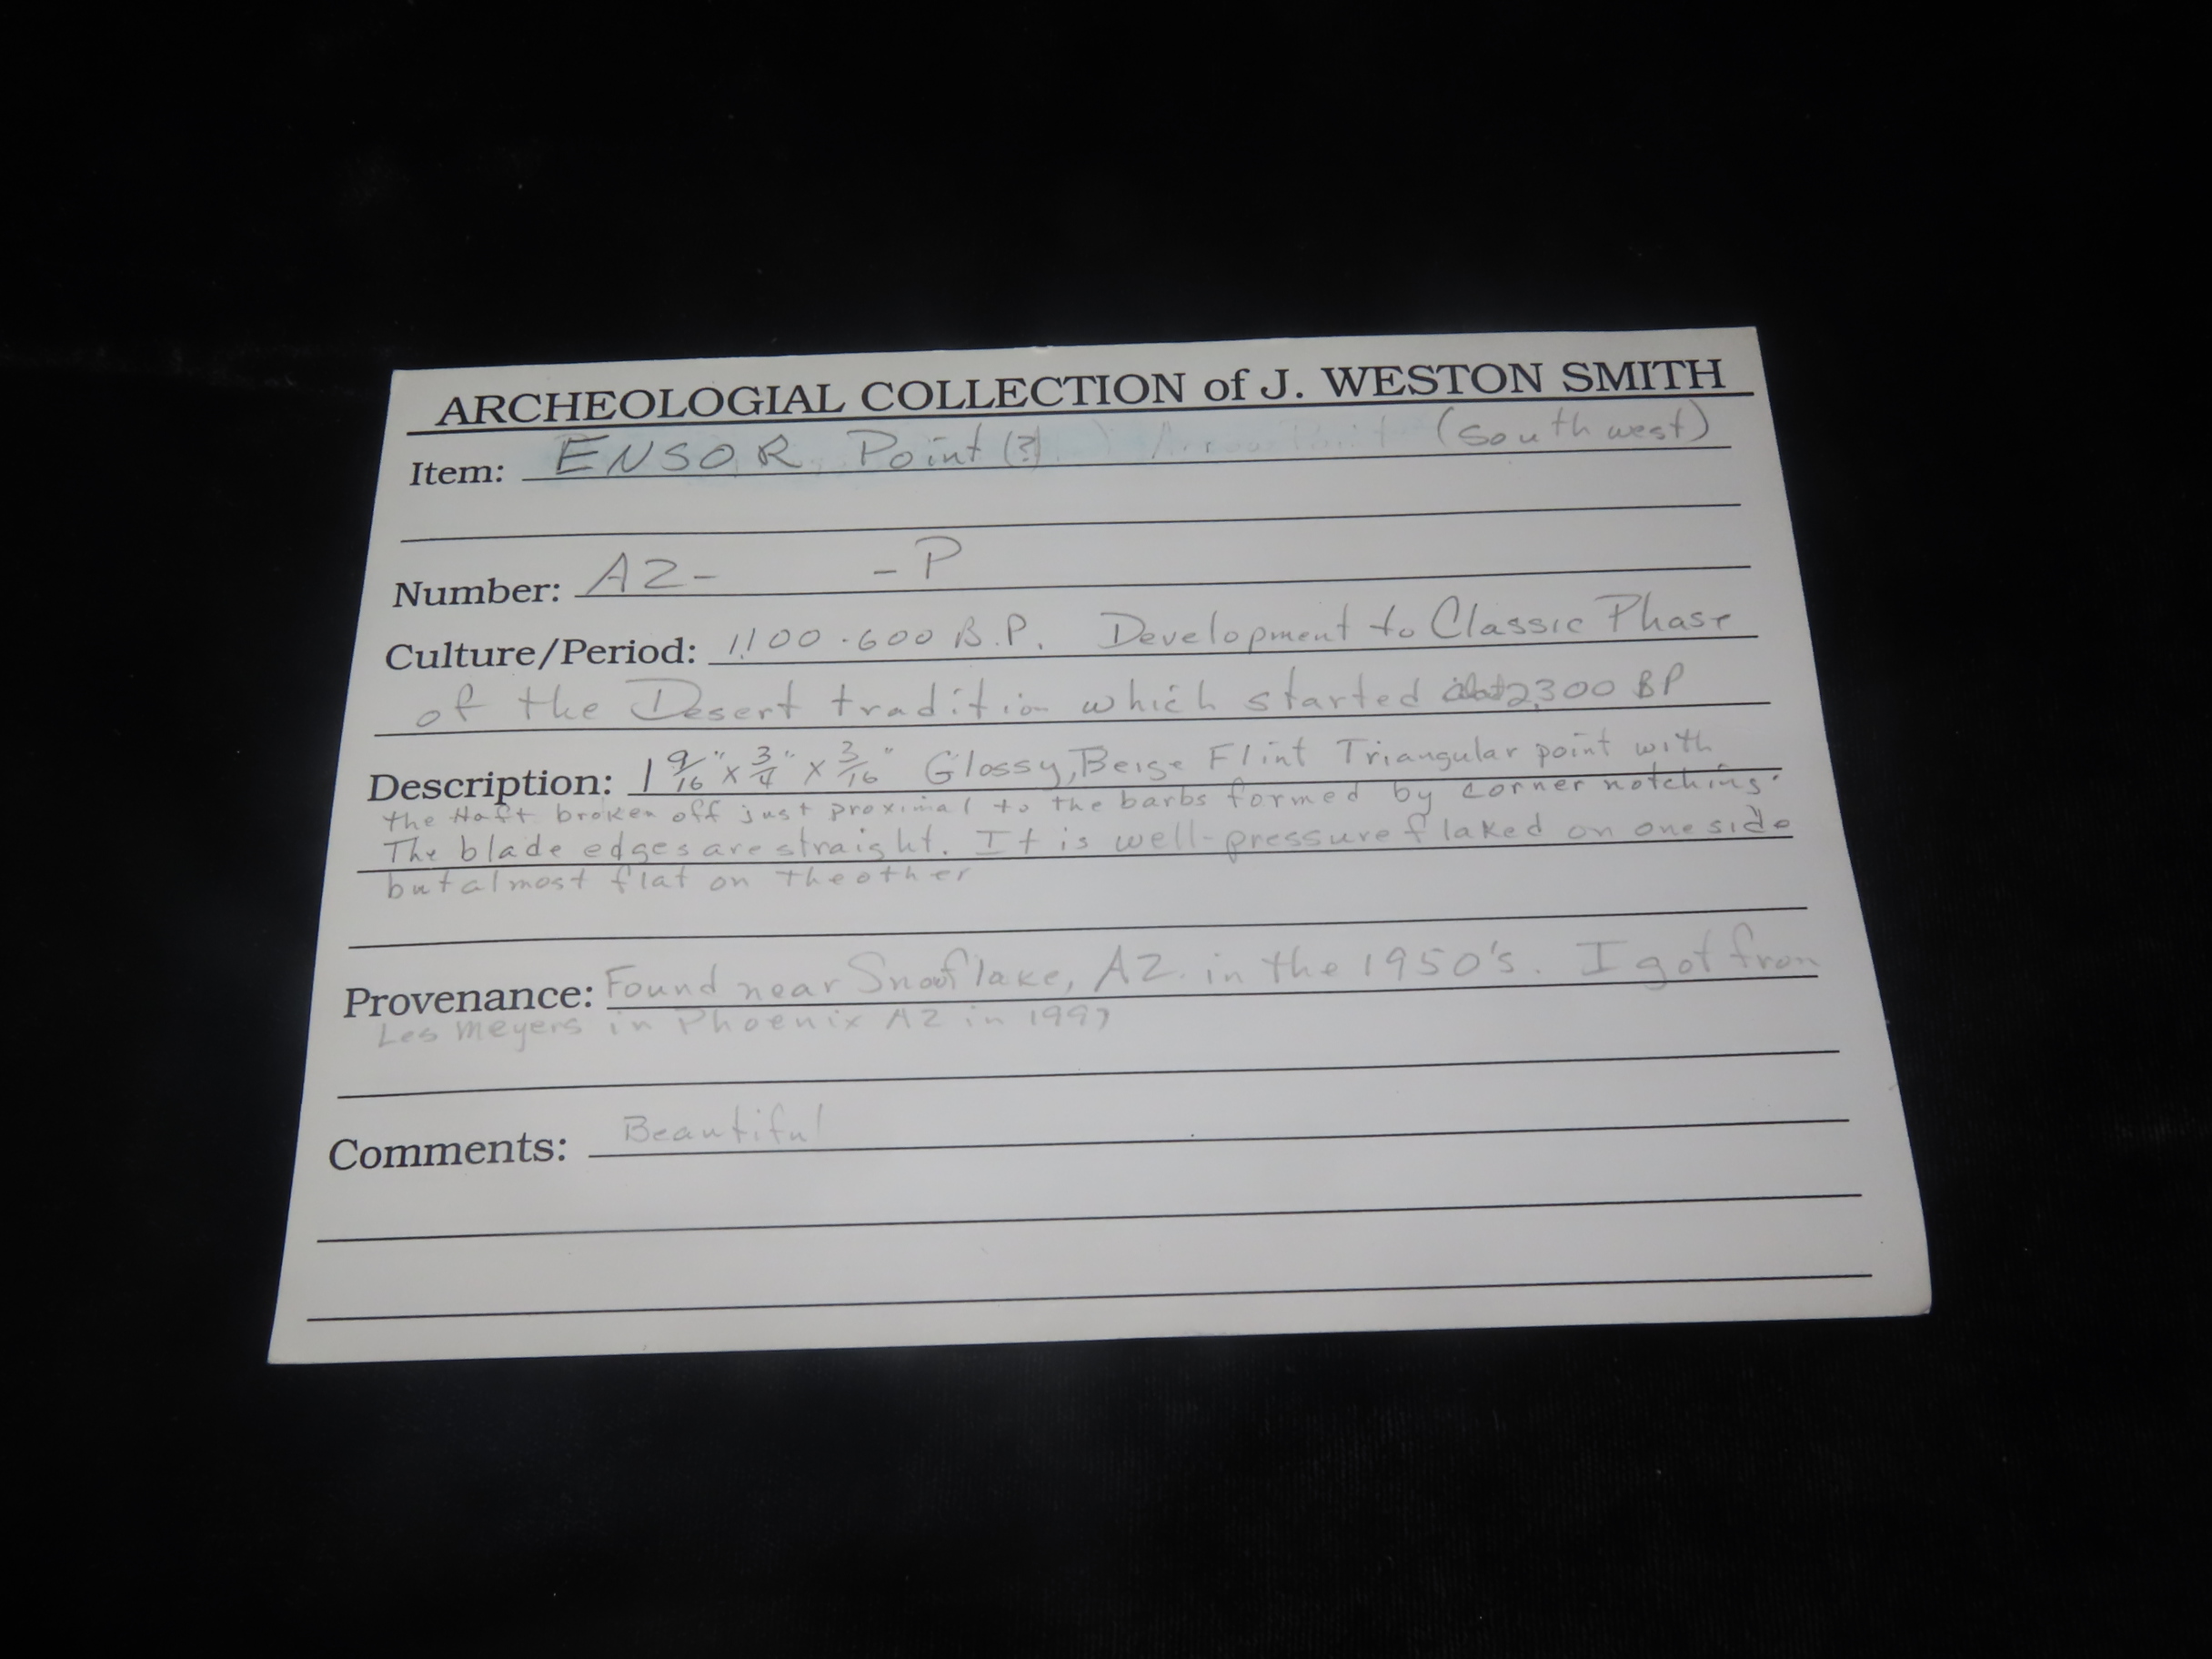 ARCHEOLOGIAL COLLECTION of J. WESTON SMITH
Item: ENSOR Point (?) (Southwest)
Number: AZ- -P
Culture/Period: 1,100-600 B.P. Development to Classic Phase
of the Desert tradition which started 2,300 BP
Description: 1 9/16" x 3/4" x 3/16" Glossy, Beige Flint Triangular point with
the Haft broken off just proximal to the barbs formed by corner notching.
The blade edges are straight. It is well-pressure flaked on one side
but almost flat on the other
Provenance: Found near Snowflake, AZ. in the 1950's. I got from
Les Meyers in Phoenix AZ in 1997
Comments: Beautiful